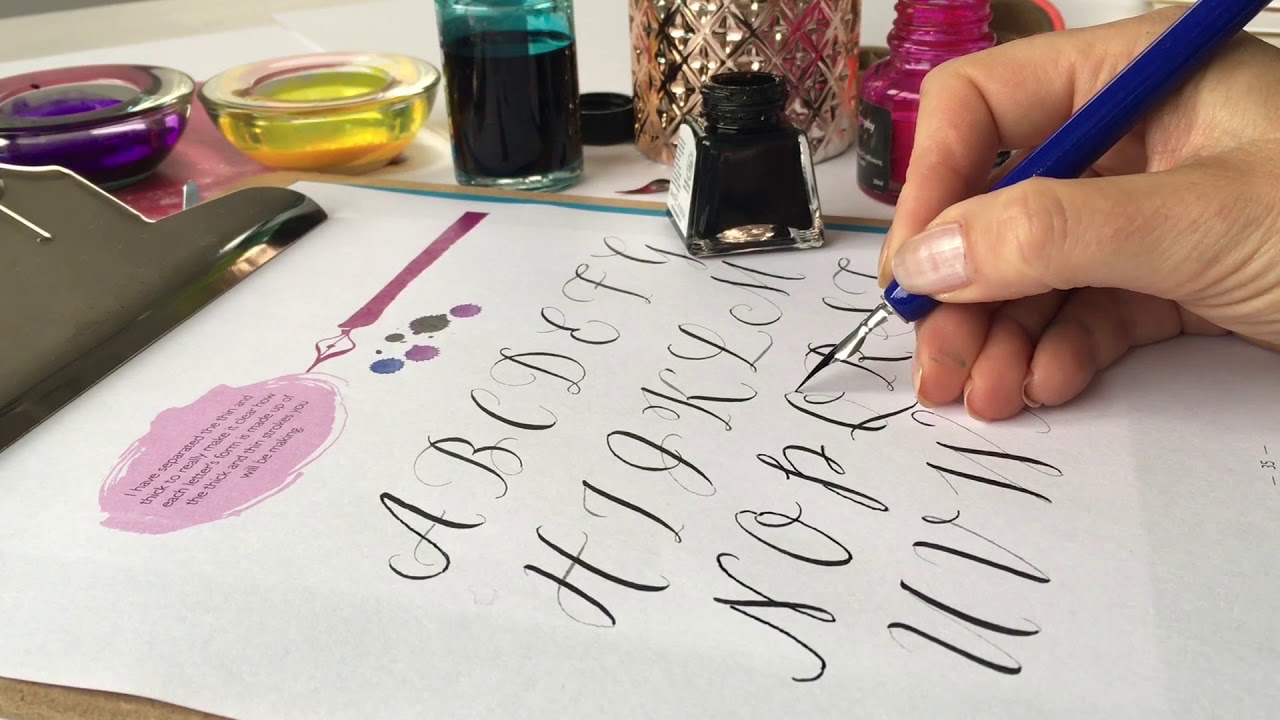 I have separated the thin and
thick to really make it clear how
each letter's form is made up of
the thick and thin strokes you
will be making.
A B C D E F G
H I J K L M
N O P Q R
U V W
- 35 -